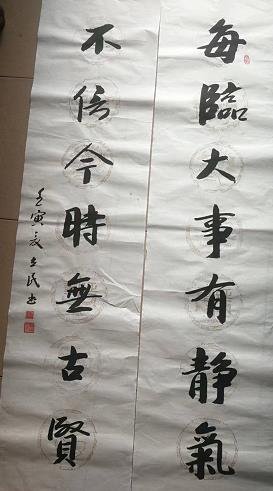 每臨大事有靜氣
不信今時無古賢
壬寅夏立民书